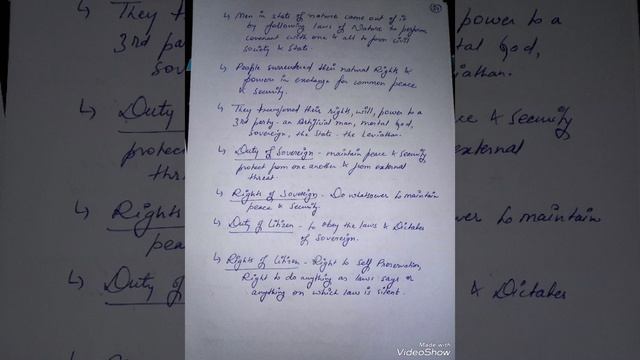 ↳ Men in state of nature came out of it
by following laws of Nature to perform
covenant with one & all to form civil
society & State.
↳ People surrendered their natural Rights &
powers in exchange for common peace
& security.
↳ They transferred their right, will, power to a
3rd party - an Artificial man, mortal God,
Sovereign, the State - the Leviathan.
↳ Duty of Sovereign - maintain peace & security
protect from one another & from external
threat.
↳ Rights of Sovereign - Do whatsoever to maintain
peace & security.
↳ Duty of Citizen - to obey the laws & Dictates
of Sovereign.
↳ Rights of Citizen - Right to self Preservation
Right to do anything as laws says or
anything on which law is silent.
Made with
VideoShow